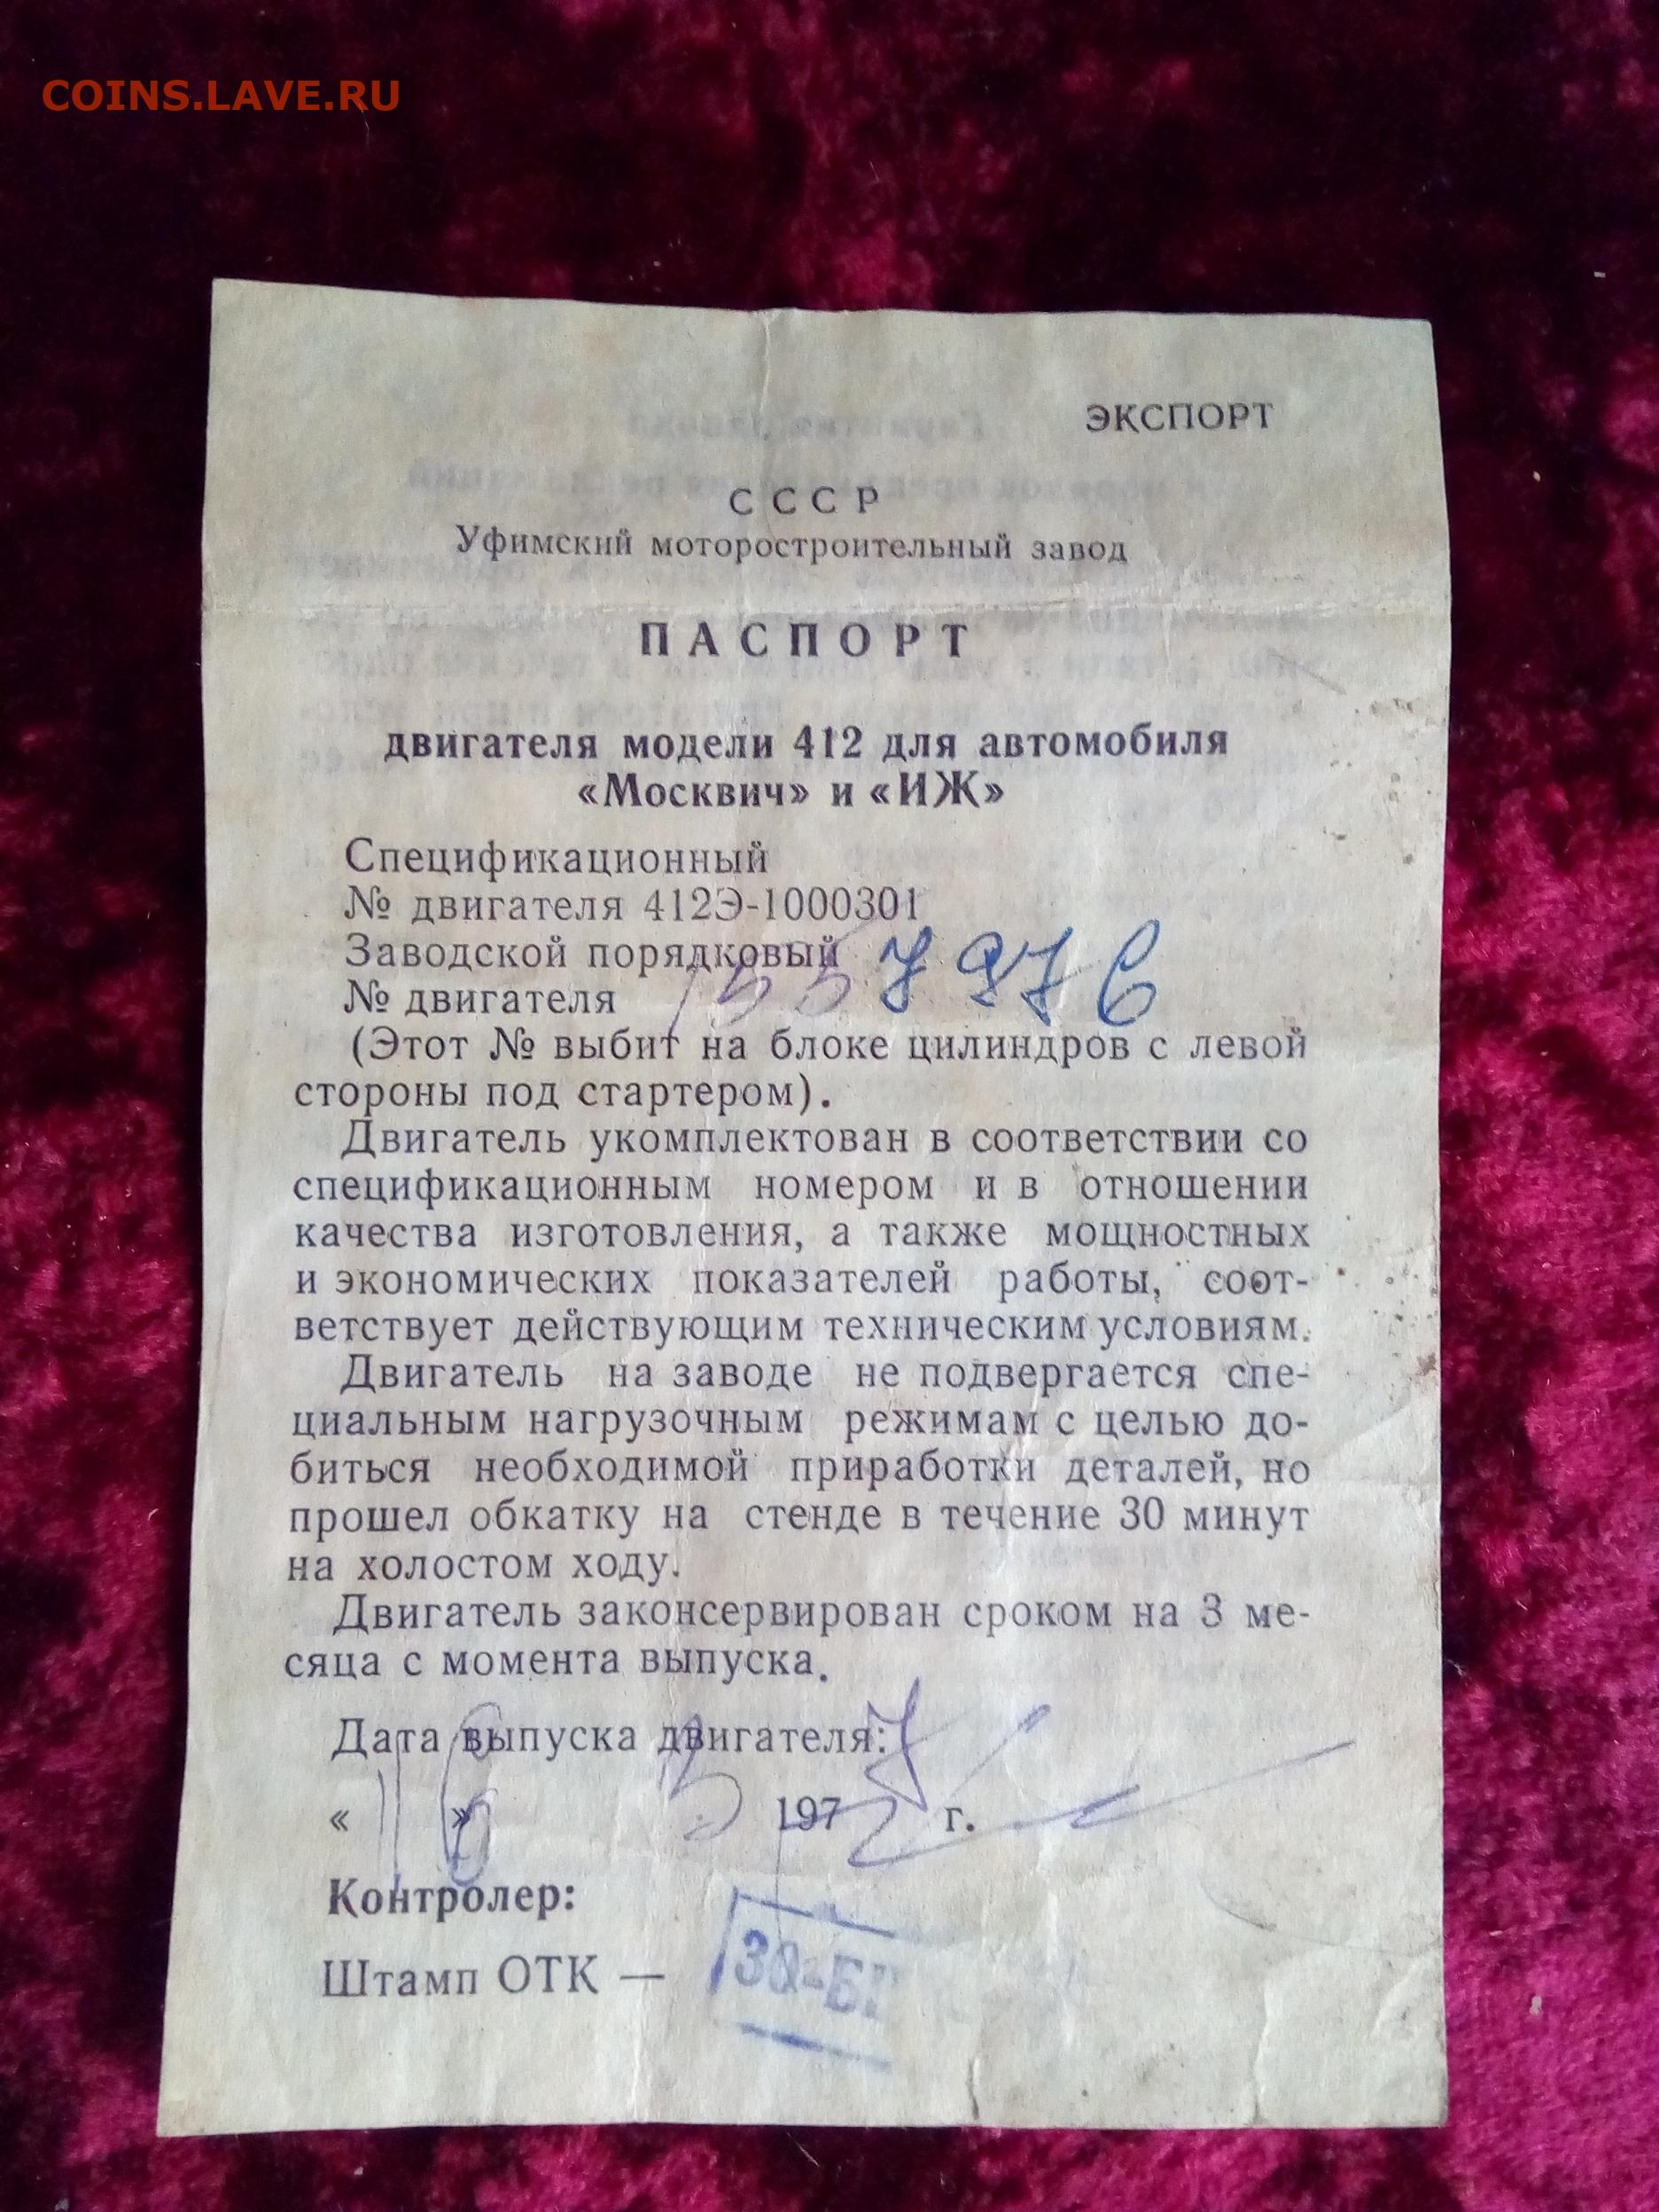 COINS.LAVE.RU
ЭКСПОРТ
СССР
Уфимский моторостроительный завод
ПАСПОРТ
двигателя модели 412 для автомобиля
«Москвич» и «ИЖ»
Спецификационный
№ двигателя 412Э-1000301
Заводской порядковый
№ двигателя
(Этот № выбит на блоке цилиндров с левой
стороны под стартером).
Двигатель укомплектован в соответствии со
спецификационным номером и в отношении
качества изготовления, а также мощностных
и экономических показателей работы, соот-
ветствует действующим техническим условиям.
Двигатель на заводе не подвергается спе-
циальным нагрузочным режимам с целью до-
биться необходимой приработки деталей, но
прошел обкатку на стенде в течение 30 минут
на холостом ходу.
Двигатель законсервирован сроком на 3 ме-
сяца с момента выпуска.
Дата выпуска двигателя:
« » 197 г.
Контролер:
Штамп ОТК —